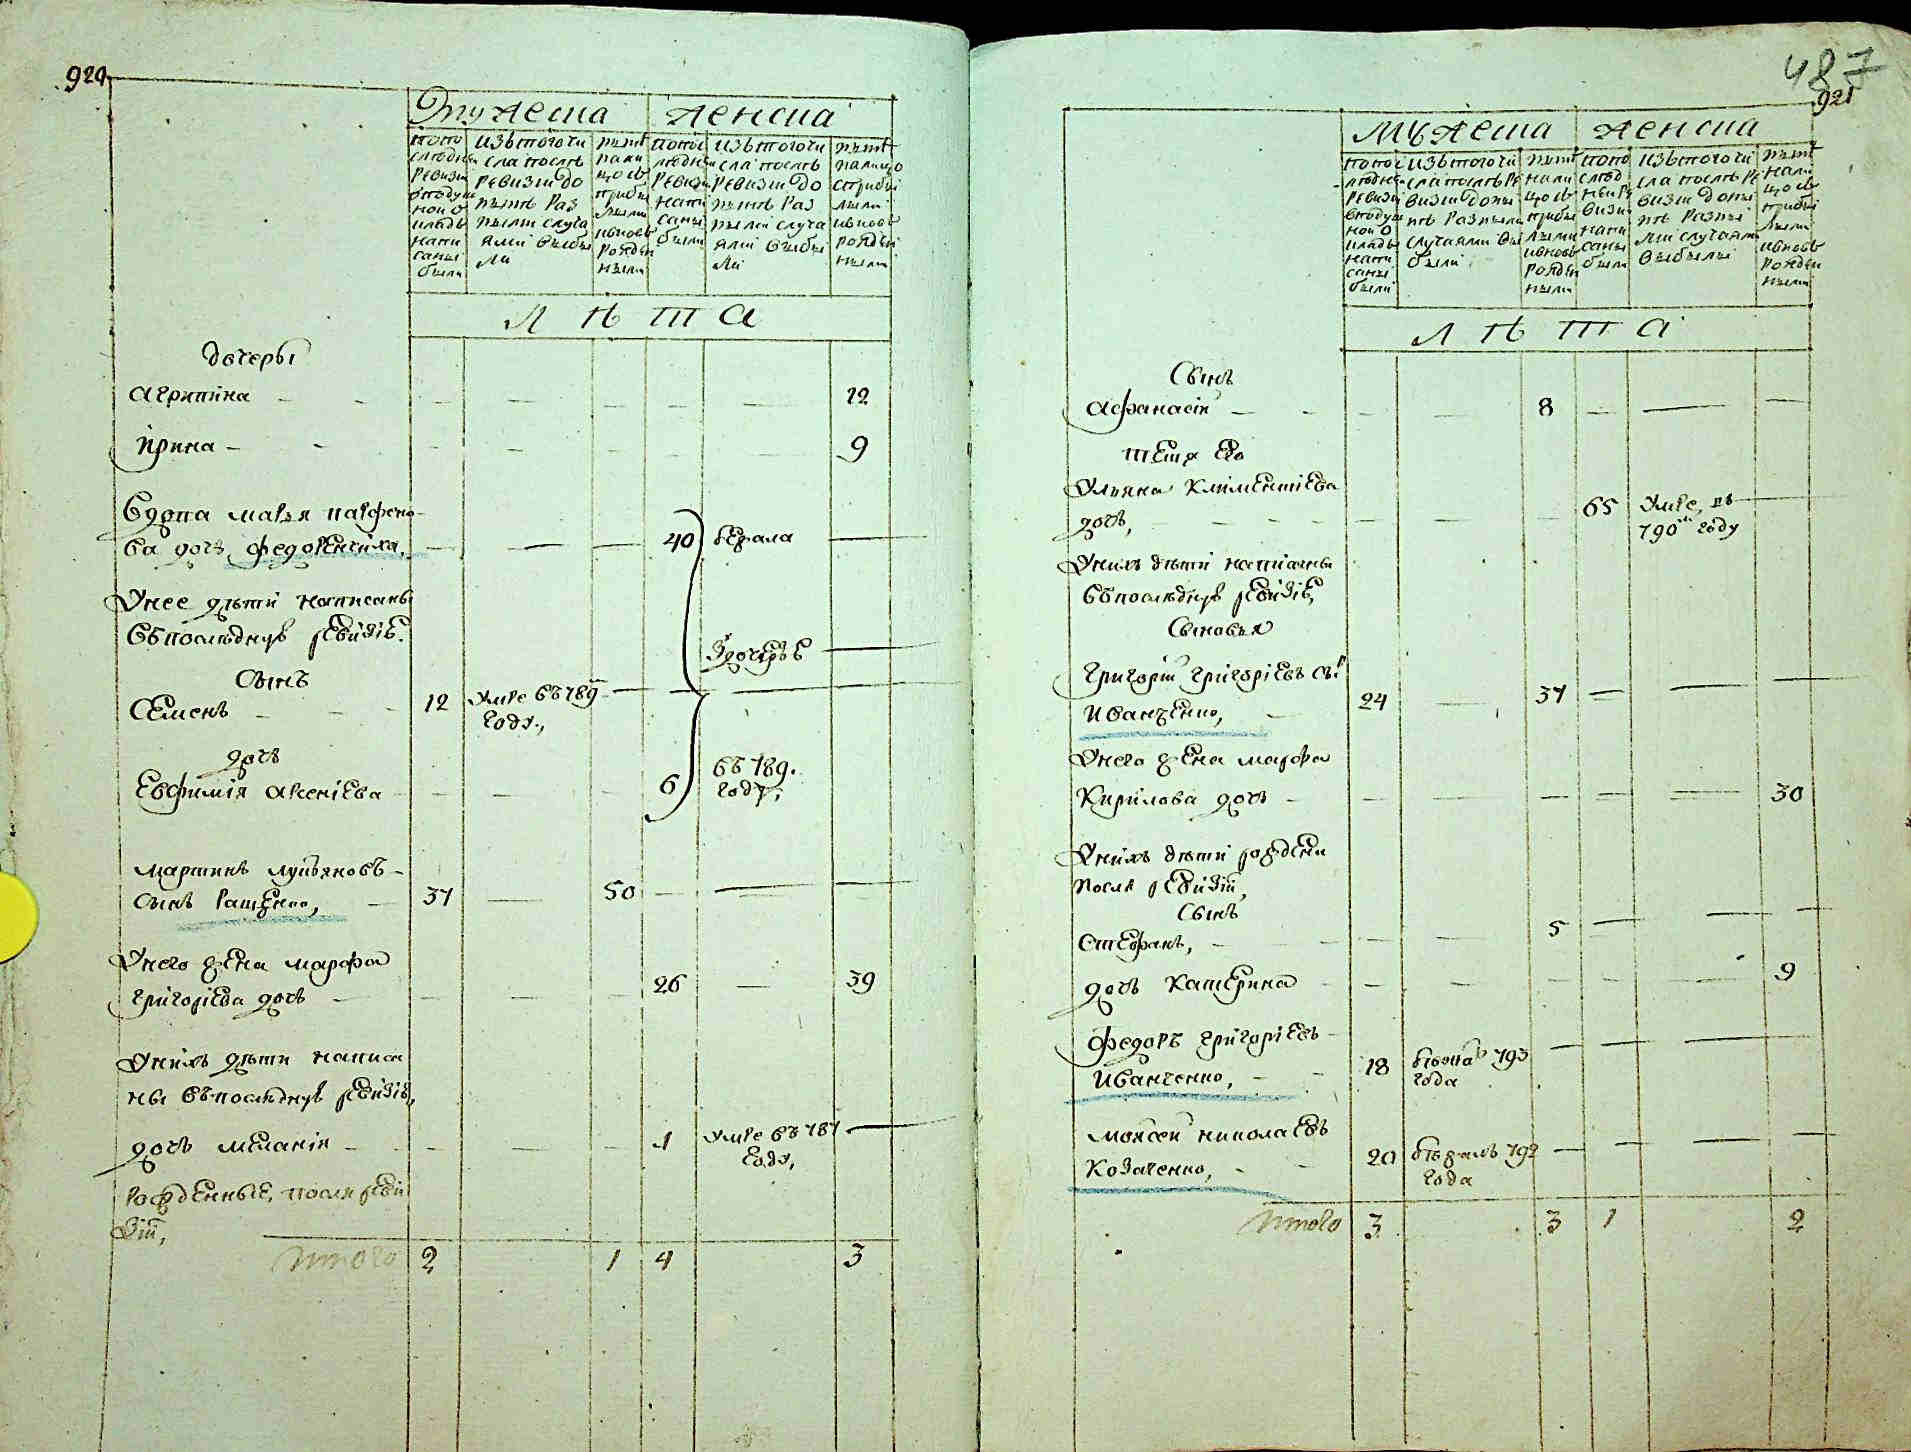 920
Мужеска
женска
попо
следней
ревизи
вподуш
ной о
кладъ
напи
саны
были
изътогочи
сла послѣ
ревизии до
нынѣ раз
ными случа
ями выбы
ли
нынѣ
нали
цо съ
прибы
лыми
ивновъ
рожден
ными
попос
ледней
ревизи
напи
саны
были
изътогочи
сла послѣ
ревизии до
нынѣ раз
ными случа
ями выбы
ли
нынѣ
налицо
сприбы
лыми
ивновъ
рожден
ными
Л ѣ т а
дочеры
Агрипина 12
Ирина 9
Вдова марья парфено
ва дочь, федоренчиха, 40 бежала
Унее дѣти написаны
въпослѣдную ревизію.
здочерю
Сынъ
Семенъ 12 умре въ 789
году.,
дочь
Евфимія Арсеніева 6 въ 789.
году;
мартинъ лукъяновъ
сынъ Ращенко, 37 50
Унего жена марфа
григоріева дочь 26 39
Унихъ дѣти написа
ны въпослѣдную ревизію,
дочь меланія 1 умре въ 787
году,
рожденные, после реви
зіи,
итого 2 1 4 3
487
921
Мужеска
женска
попос
ледней
ревизи
вподуш
ной о
кладъ
напи
саны
были
изътогочи
сла послѣ ре
визии доны
нѣ разными
случаями вы
были
нынѣ
нали
цо съ
прибы
лыми
ивновъ
рожден
ными
попо
след
ней ре
визии
напи
саны
были
изътогочи
сла послѣ ре
визии доны
нѣ разны
ми случаями
выбылы
нынѣ
нали
цо съ
прибы
лыми
ивновъ
рожден
ными
Л ѣ т а
Сынъ
Афанасій 8
теща его
Ульяна Климентіева
дочь, 65 умре, въ
790м году
Унихъ дѣти написаны
въпослѣдную ревизію,
Сыновья
Григорій григоріевъ сы:
Иванченко, 24 37
Унего жена марфа
Кирилова дочь 30
Унихъ дѣти рождены
после ревизій,
Сынъ
Стефанъ, 5
дочь Катерина 9
федоръ григоріевъ
Иванченко, 18 793
года
моисей николаевъ
Козаченко, 20 бѣжалъ 792
года
итого 3 3 1 2